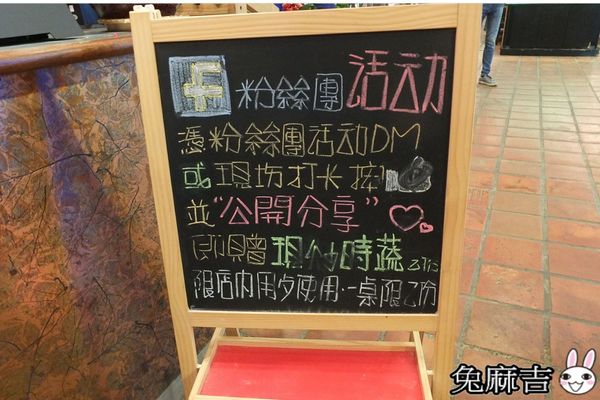 f 粉絲團活动
憑粉絲團活动DM
或現場打卡按
並“公開分享”
即贈現炒時蔬
限店內用夕使用·一桌限乙份
兔麻吉